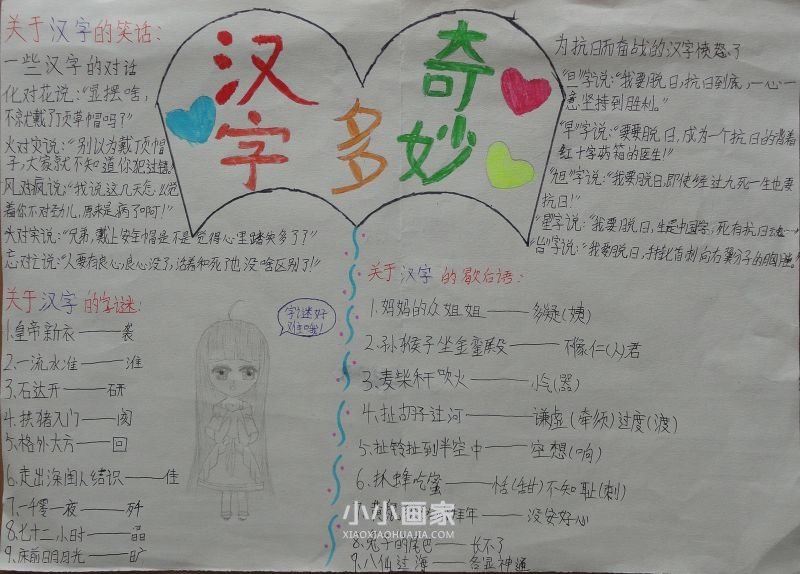 关于汉字的笑话：
一些汉字的对话
化对花说："显摆啥，
不就戴了顶草帽吗？"
火对灾说："别以为戴了顶帽
子，大家就不知道你犯过错。"
风对疯说："我说这几天怎么觉
着你不对劲儿，原来是病了啊！"
头对实说："兄弟，戴上安全帽是不是觉得心里踏实多了？"
忘对亡说："人要有良心，良心没了，活着和死了也没啥区别了！"
关于汉字的字谜：
1.皇帝新衣——袭
2.一流水准——淮
3.石达开——研
4.扶猪入门——阂
5.格外大方——回
6.走出深闺人结识——佳
7.一千零一夜——歼
8.七十二小时——晶
9.床前日月光——旷
汉字
多
奇妙
字谜好
难哦！
为抗日而奋战的汉字愤怒了
"旦"字说："我要脱日，抗日到底，一心一
意坚持到胜利。"
"早"字说："我要脱日，成为一个抗日的背着
红十字药箱的医生！"
"旭"字说："我要脱日，即使经过九死一生也要
抗日！"
"星"字说："我要脱日，生是中国字，死有抗日
"皆"字说："我要脱日，用匕首刺向右翼分子的胸
关于汉字的歇后语：
1.妈妈的众姐姐——多疑(姨)
2.孙猴子坐金銮殿——不像仁(人)君
3.麦柴秆吹火——小气(器)
4.扯胡子过河——谦虚(牵须)过度(渡)
5.扯铃扯到半空中——空想(响)
6.抓蜂吃蜜——恬(甜)不知耻(刺)
拜年——没安好心
8.兔子的尾巴——长不了
9.八仙过海——各显神通
小小画家
XIAOXIAOHUAJIA.COM